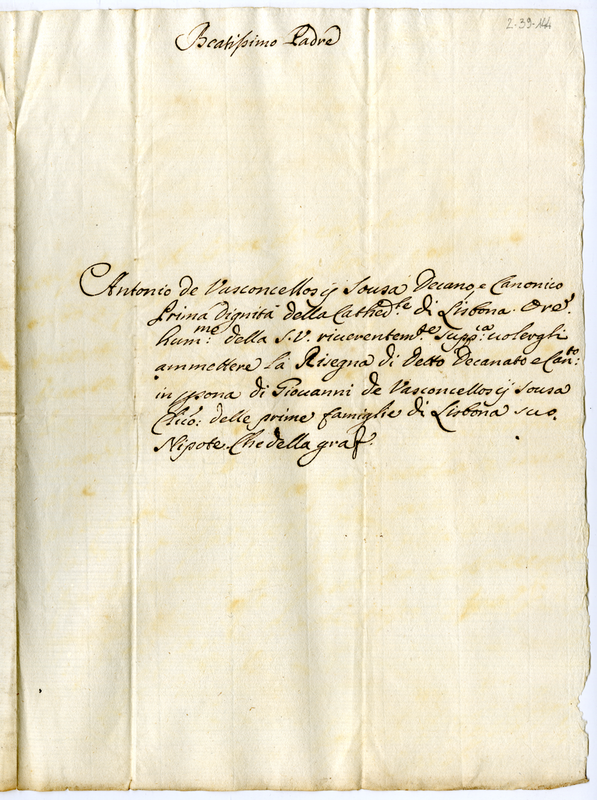 2-39-144
Beatissimo Padre
Antonio de Vasconcellos ÿ Sousa Decano, e Canonico
prima Dignità della Cathed.le di Lisbona. Ore:
hum.mo della S.V. riverentem.te supp.ca volergli
ammettere la Risegna di detto Decanato e Can.to:
in psona di Giovanni de Vasconcellos ÿ Sousa
Chico: delle prime famiglie di Lisbona suo
Nipote. Che della gra